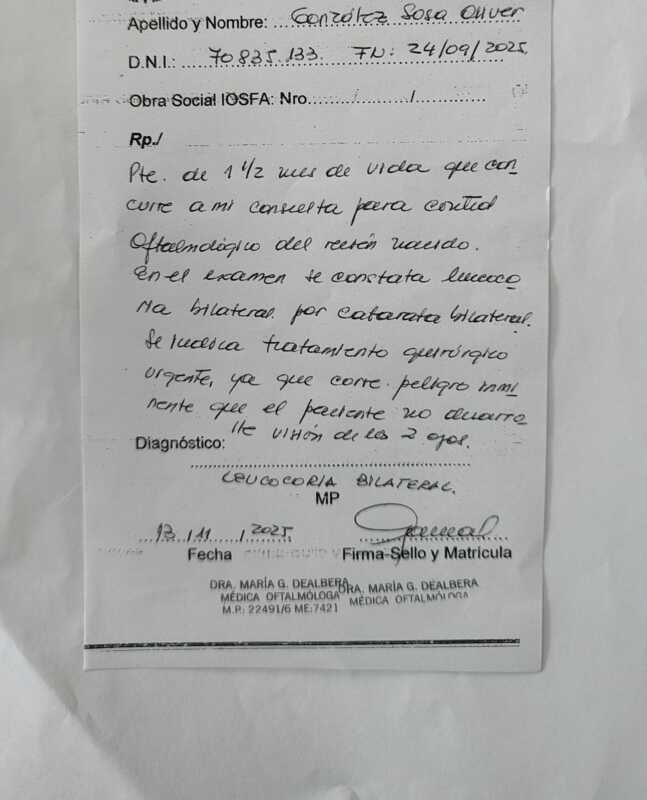 Apellido y Nombre: González Sosa Oliver
D.N.I.: 70835.133. FN: 24/09/2025.
Obra Social IOSFA: Nro. / /
Rp./
Pte. de 1 1/2 mes de vida que con
curre a mi consulta para control
Oftalmológico del recién nacido.
En el examen se constata leucoco
ria bilateral por catarata bilateral.
Se indica tratamiento quirúrgico
urgente, ya que corre peligro inmi
nente que el paciente no desarro
lle visión de los 2 ojos.
Diagnóstico:
LEUCOCORIA BILATERAL.
MP
13 /11 /2025
Fecha
Firma-Sello y Matricula
DRA. MARÍA G. DEALBERA
MÉDICA OFTALMÓLOGA
M.P.: 22491/6 ME:7421
DRA. MARÍA G. DEALBERA
MÉDICA OFTALMÓLOGA